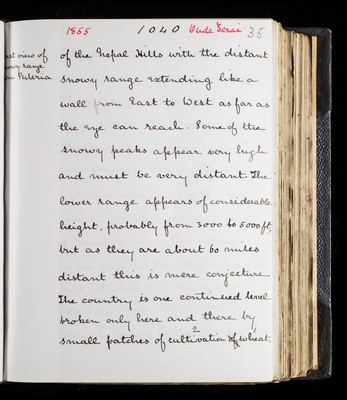 1855 1040 Oude Terai 35
view of
snowy range
Puleria
of the Nepal Hills with the distant
snowy range extending like a
wall from East to West as far as
the eye can reach. Some of the
snowy peaks appear very high
and must be very distant. The
lower range appears of considerable
height, probably from 3000 to 5000 ft,
but as they are about 60 miles
distant this is mere conjecture.
The country is one continued level
broken only here and there by
2
small patches of cultivation of wheat.